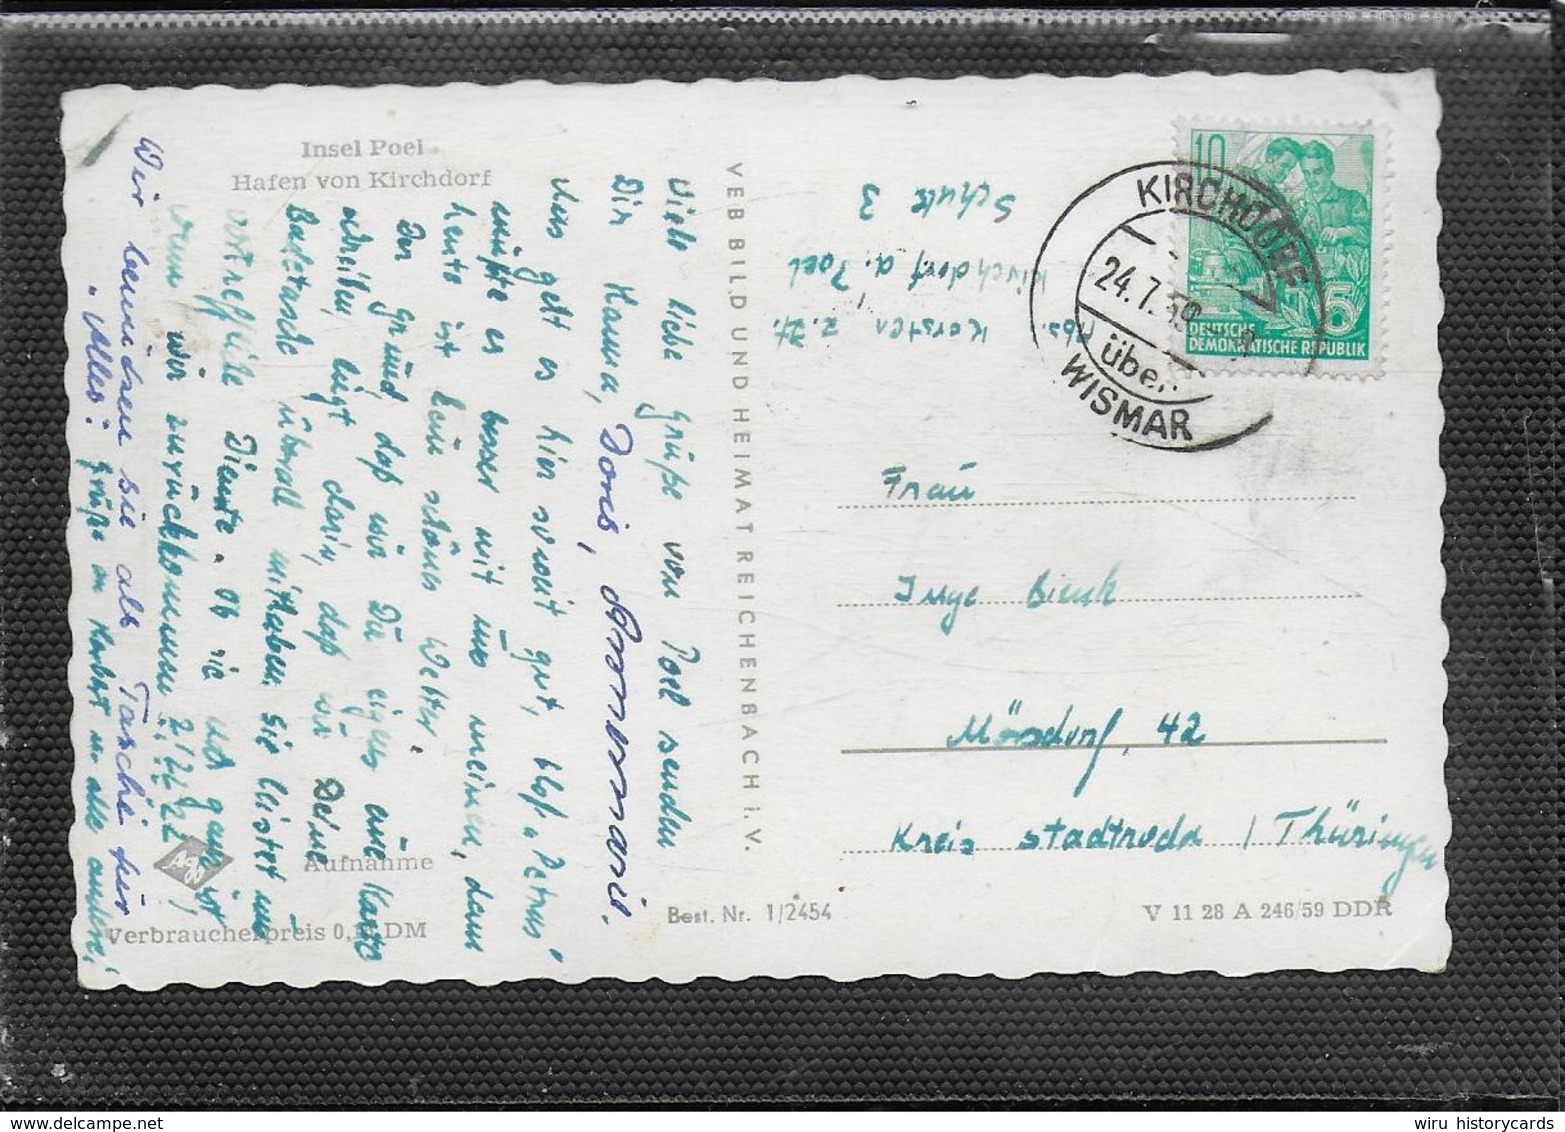 Insel Poel
Hafen von Kirchdorf
Viele liebe Grüße von Poel senden
Dir Hanna, Doris, Annemarie.
Uns geht es hier soweit gut, bloß "Petrus"
müßte es besser mit uns meinen, denn
heute ist kein schönes Wetter.
Der Grund daß wir Dir eigens eine Karte
schreiben, liegt darin, daß wir Deine
Badetasche überall mithaben sie leistet uns
vortreffliche Dienste. Ob sie noch ganz ist
wenn wir zurückkommen ?!?!??!
Wir benutzen sie als Tasche für
"Alles". Grüße an Herbert u. alle andern!
Aufnahme
Verbraucherpreis 0, DM
VEB BILD UND HEIMAT REICHENBACH i. V.
Best. Nr. 1/2454
V 11 28 A 246/59 DDR
Abs. Karsten z. Zt.
Kirchdorf a. Poel
Schule 3
10
5
DEUTSCHE
DEMOKRATISCHE REPUBLIK
KIRCHDORF
24.7.59
über
WISMAR
Frau
Inge Bienk
Mörsdorf, 42
Kreis Stadtroda / Thüringen
wiru historycards